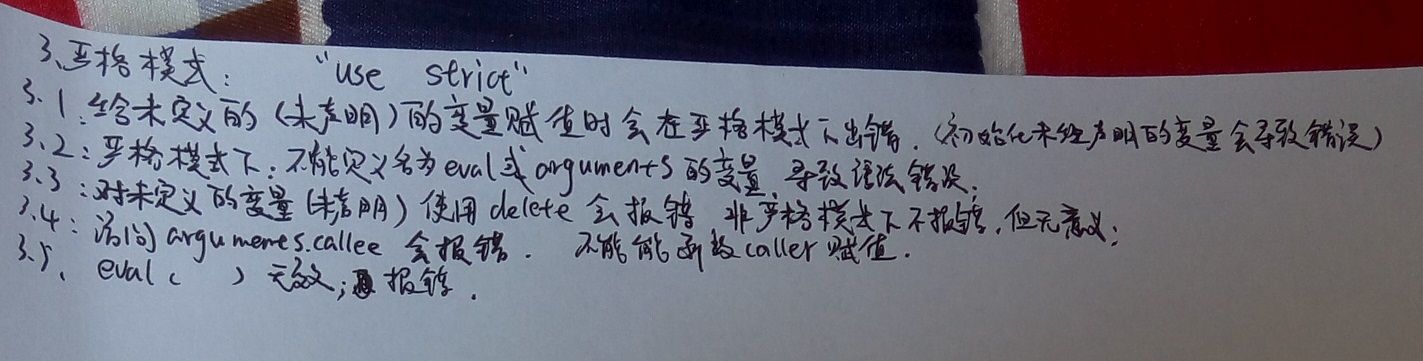 3、严格模式： "use strict"
3.1：给未定义的（未声明）的变量赋值时会在严格模式下出错.（初始化未经声明的变量会导致错误）
3.2：严格模式下：不能定义名为eval或arguments的变量，导致语法错误;
3.3：对未定义的变量（未声明）使用 delete 会报错 非严格模式下不报错，但无意义；
3.4：访问 arguments.callee 会报错. 不能能函数caller赋值.
3.5、eval（ ）无效; 报错.